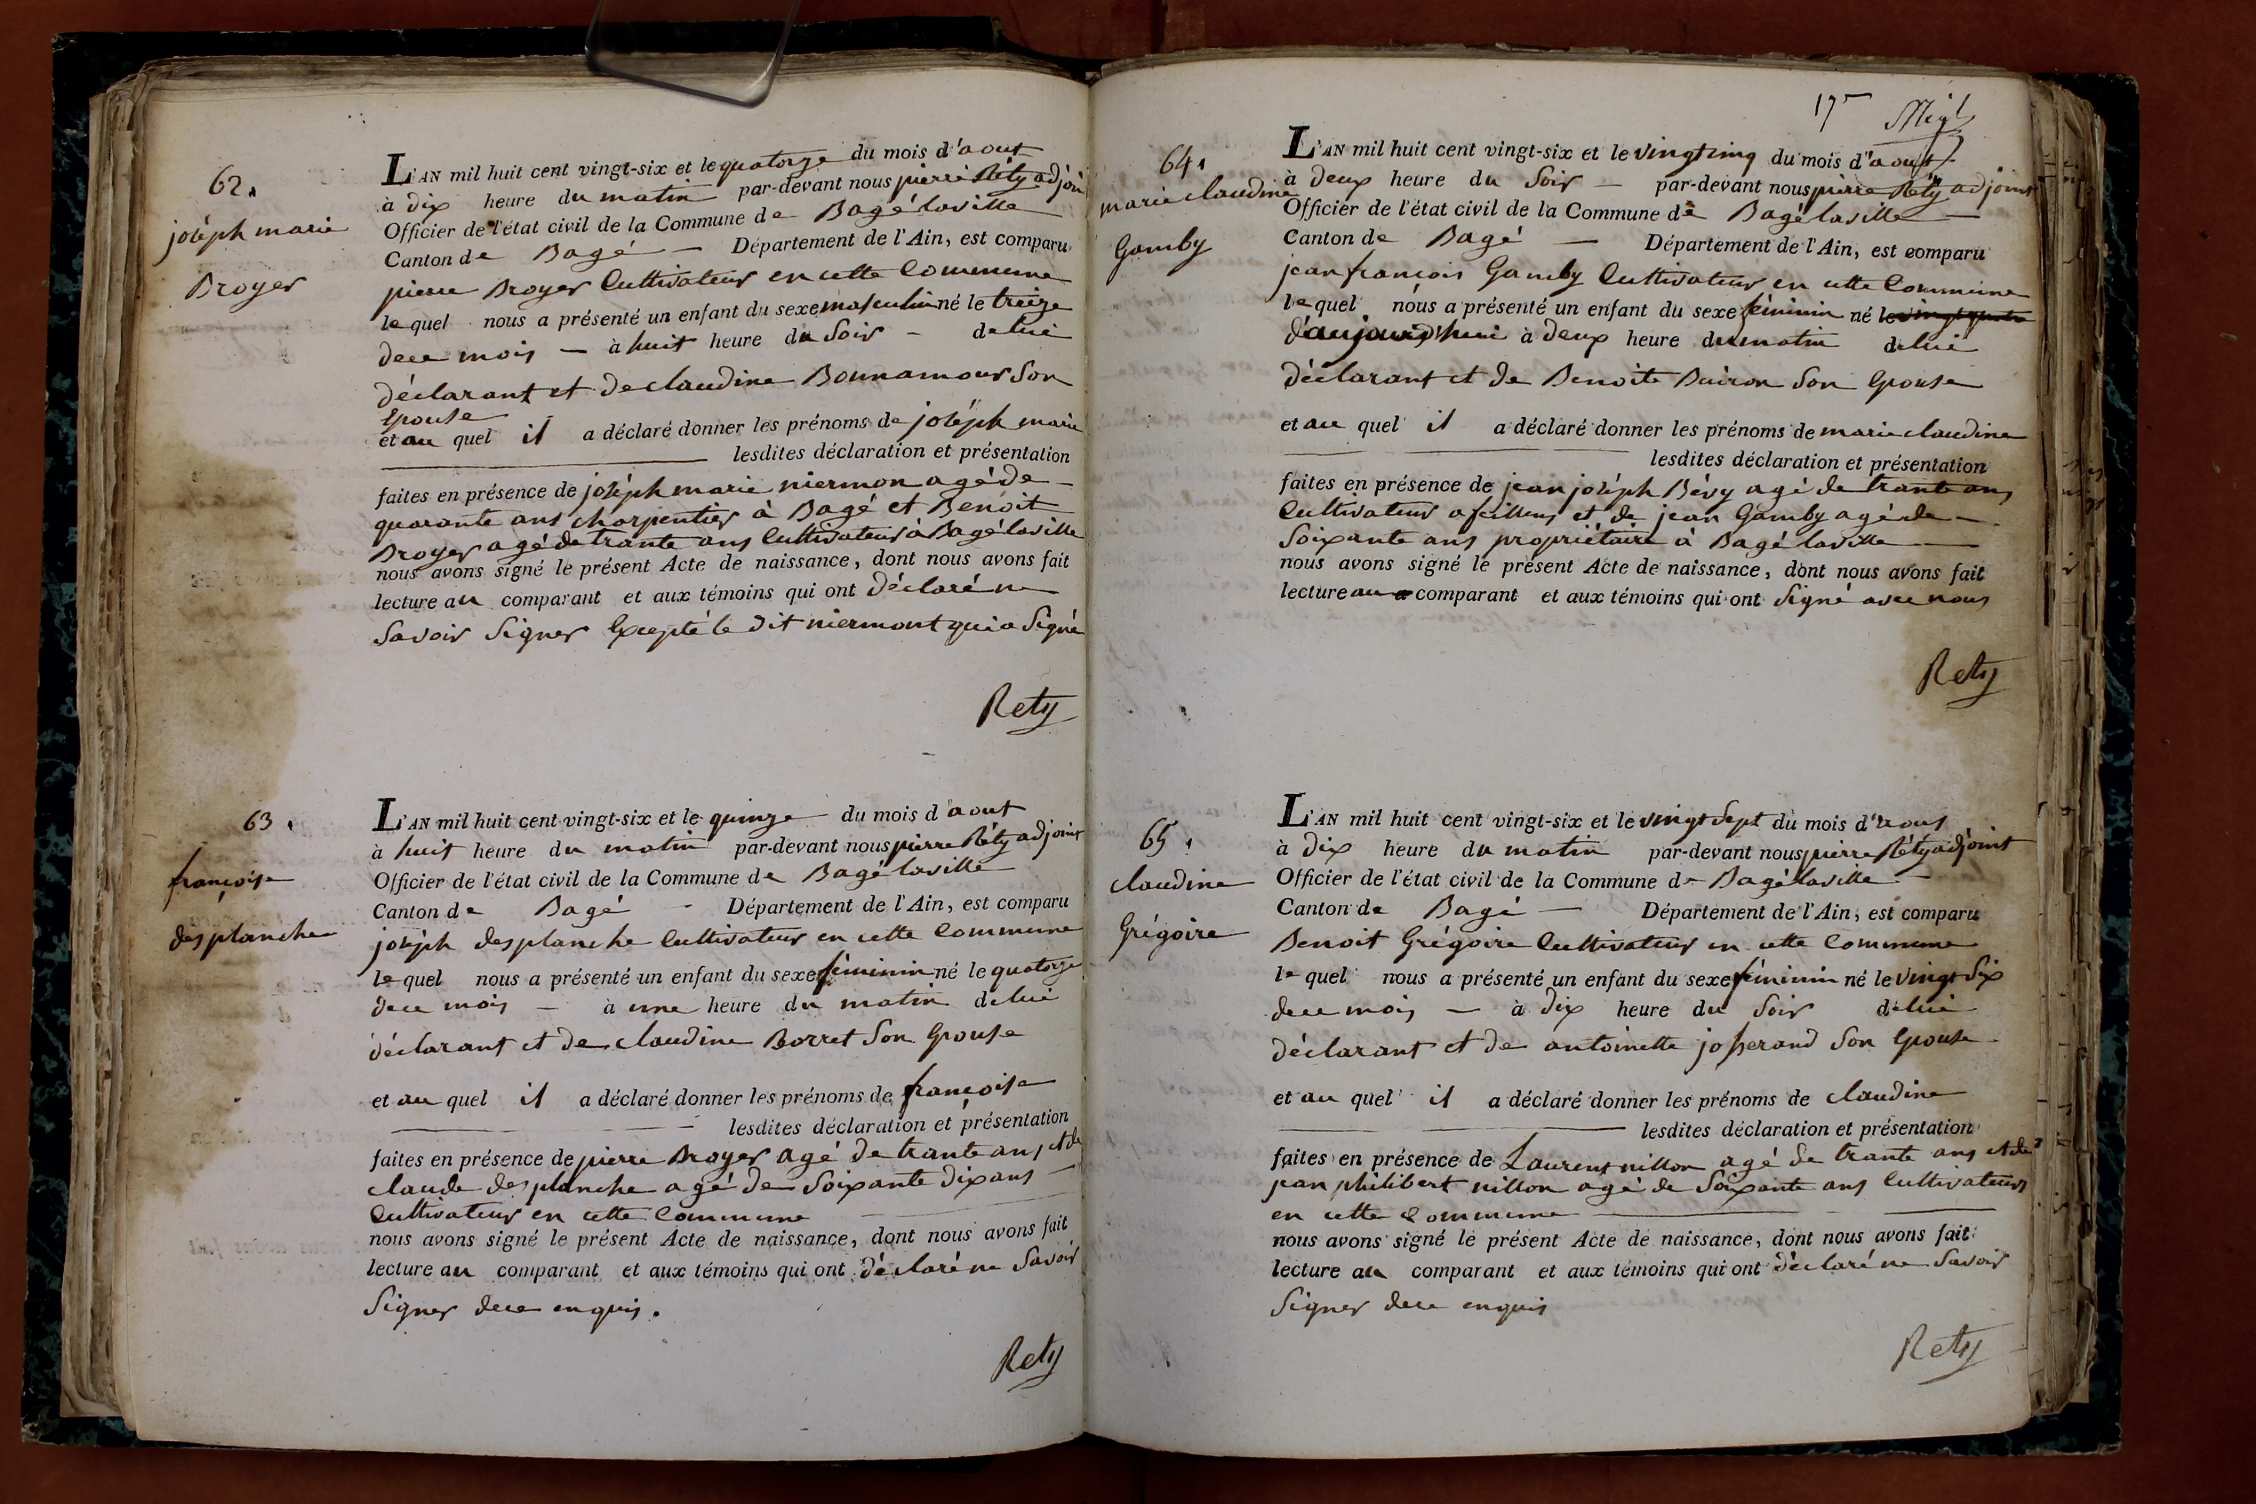 62.
joséph marie
Broyer
L'AN mil huit cent vingt-six et le quatorze du mois d'aout
à dix heure du matin par-devant nous pierre Réty adjoint
Officier de l'état civil de la Commune de Bagé laville
Canton de Bagé — Département de l'Ain, est comparu
pierre Broyer Cultivateur en cette Commune
lequel nous a présenté un enfant du sexe masculin né le treize
dece mois — à huit heure du Soir – delui
déclarant et de claudine Bonnamour Son
Epouse
et au quel il a déclaré donner les prénoms de joséph marie
lesdites déclaration et présentation
faites en présence de joséph marie niermon agé de —
quarante ans charpentier à Bagé et Benoit
Broyer agé de trante ans Cultivateur à Bagé laville
nous avons signé le présent Acte de naissance, dont nous avons fait
lecture au comparant et aux témoins qui ont déclaré ne
Savoir Signer Excepté le dit niermont qui a Signé
Rety
63.
françoise
desplanche
L'AN mil huit cent vingt-six et le quinze du mois d'aout
à huit heure du matin par-devant nous pierre Réty adjoint
Officier de l'état civil de la Commune de Bagé laville
Canton de Bagé - Département de l'Ain, est comparu
joséph desplanche Cultivateur en cette Commune
lequel nous a présenté un enfant du sexe féminin né le quatorze
dece mois — à une heure du matin delui
déclarant et de claudine Borret Son Epouse
et au quel il a déclaré donner les prénoms de françoise
lesdites déclaration et présentation
faites en présence de pierre Broyer agé de trante ans et de
claude desplanche agé de Soixante dix ans —
Cultivateur en cette Commune
nous avons signé le présent Acte de naissance, dont nous avons fait
lecture au comparant et aux témoins qui ont déclaré ne Savoir
Signer dece enquis.
Rety
17
64.
marie claudine
Gamby
L'AN mil huit cent vingt-six et le vingt cinq du mois d'aout
à deux heure du Soir — par-devant nous pierre Réty adjoint
Officier de l'état civil de la Commune de Bagé laville —
Canton de Bagé — Département de l'Ain, est comparu
jean françois Gamby Cultivateur en cette Commune
lequel nous a présenté un enfant du sexe féminin né le vingt quatre
d'aujourd'hui à deux heure du matin delui
déclarant et de Benoite Buiron Son Epouse
et au quel il a déclaré donner les prénoms de marie claudine
lesdites déclaration et présentation
faites en présence de jean joséph Bévy agé de trante ans
Cultivateur a feillens et de jean Gamby agé de —
Soixante ans propriétaire à Bagé laville —
nous avons signé le présent Acte de naissance, dont nous avons fait
lecture au comparant et aux témoins qui ont Signé avec nous
Rety
65.
claudine
Grégoire
L'AN mil huit cent vingt-six et le vingt Sept du mois d'aout
à dix heure du matin par-devant nous pierre Réty adjoint
Officier de l'état civil de la Commune de Bagé laville —
Canton de Bagé — Département de l'Ain, est comparu
Benoit Grégoire Cultivateur en cette Commune
lequel nous a présenté un enfant du sexe féminin né le vingt Six
dece mois — à dix heure du Soir delui
déclarant et de antoinette josserand Son Epouse
et au quel il a déclaré donner les prénoms de claudine
lesdites déclaration et présentation
faites en présence de Laurent nillon agé de trante ans et de
jean philibert nillon agé de Soixante ans Cultivateurs
en cette Commune
nous avons signé le présent Acte de naissance, dont nous avons fait
lecture au comparant et aux témoins qui ont déclaré ne Savoir
Signer dece enquis
Rety